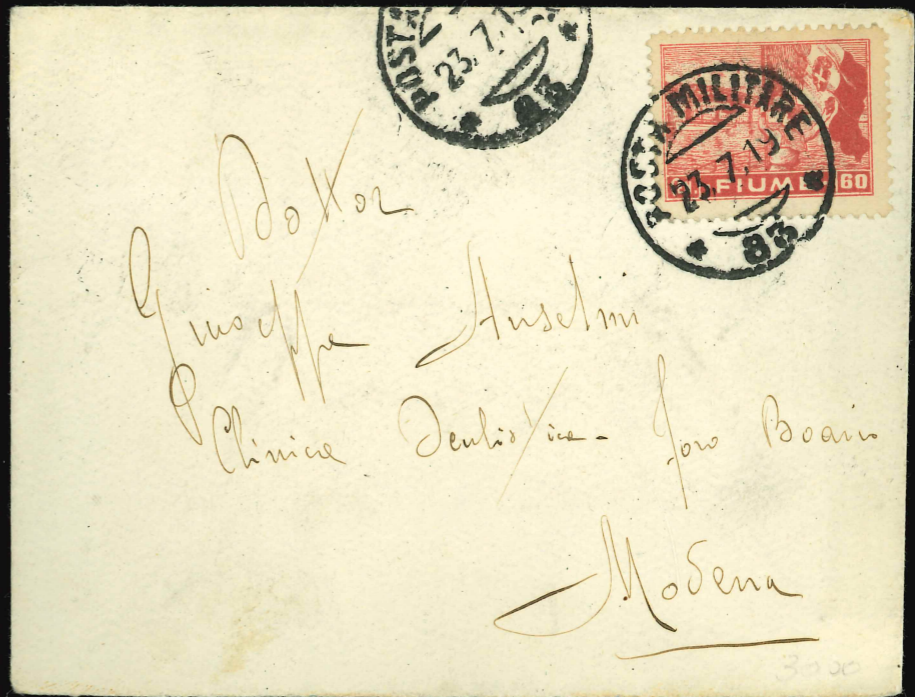 POSTA 23.7.19 83
POSTA MILITARE 23.7.19 83
FIUME 60
Dottor
Giuseppe Anselmi
Clinica Oculistica - Foro Boario
Modena
3000